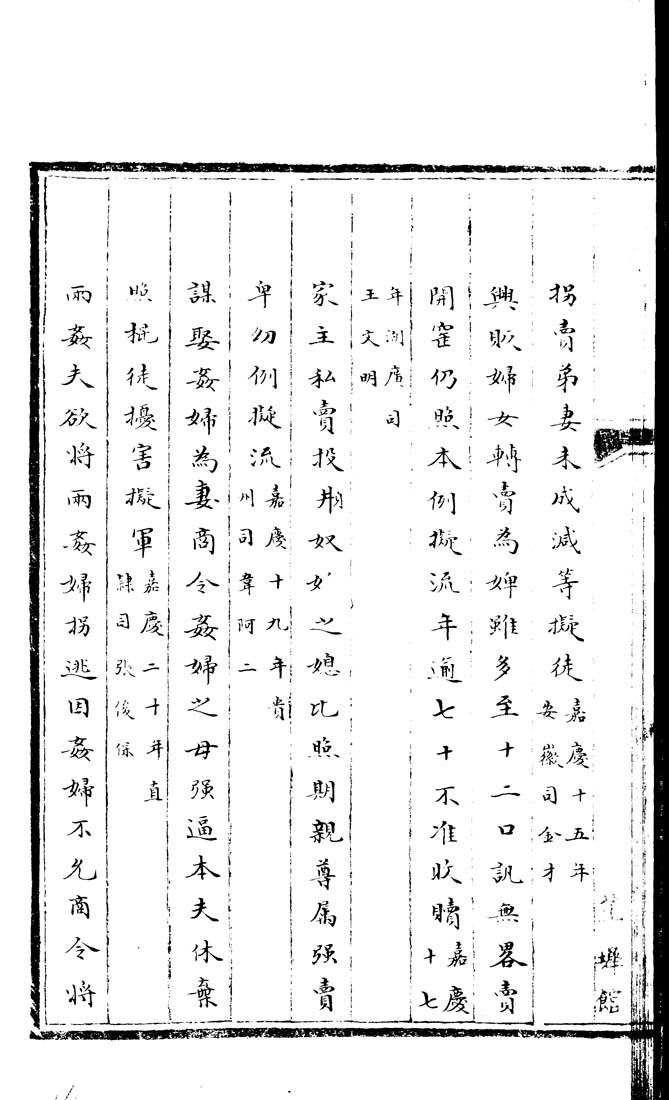 拐賣弟妻未成減等擬徒嘉慶十五年安徽司金才
興販婦女轉賣為婢雖多至十二口訊無畧賣
開窑仍照本例擬流年逾七十不准收贖嘉慶十七
年湖廣司王文明
家主私賣投靠奴才之媳比照期親尊属强賣
卑幼例擬流嘉慶十九年貴州司韋阿二
謀娶姦婦為妻商令姦婦之母强逼本夫休棄
照棍徒擾害擬軍嘉慶二十年直隸司張俊保
兩姦夫欲將兩姦婦拐逃因姦婦不允商令將
墀館